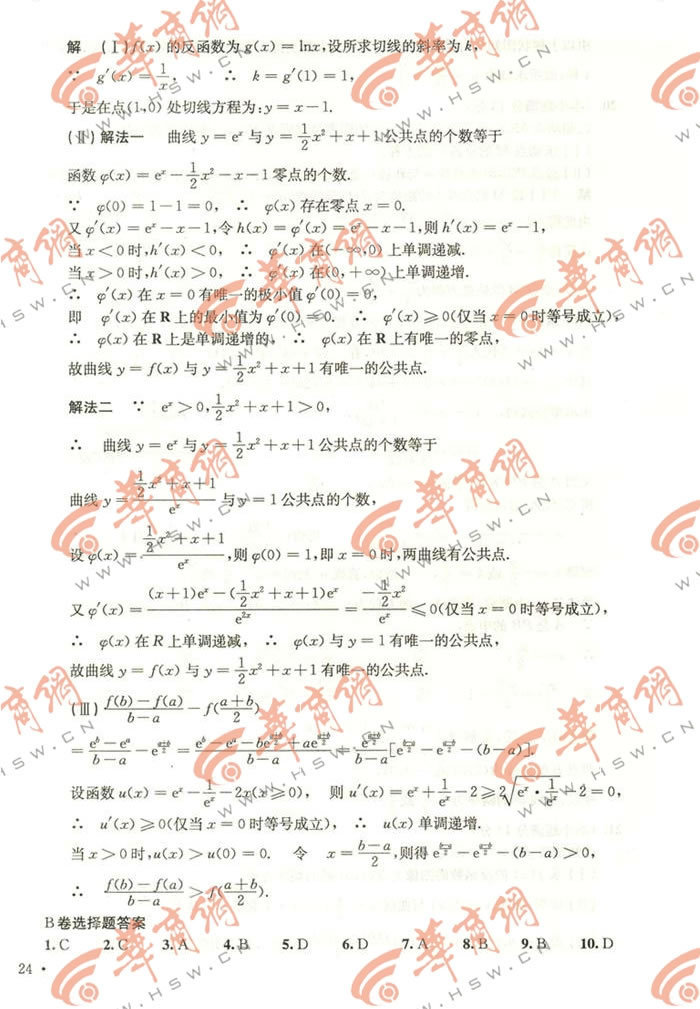 解 (Ⅰ) f(x) 的反函数为 g(x) = lnx,设所求切线的斜率为 k,
∵ g′(x) = 1/x, ∴ k = g′(1) = 1,
于是在点(1,0) 处切线方程为:y = x − 1.
(Ⅱ) 解法一 曲线 y = e^x 与 y = 1/2 x² + x + 1 公共点的个数等于
函数 φ(x) = e^x − 1/2 x² − x − 1 零点的个数.
∵ φ(0) = 1 − 1 = 0, ∴ φ(x) 存在零点 x = 0.
又 φ′(x) = e^x − x − 1,令 h(x) = φ′(x) = e^x − x − 1,则 h′(x) = e^x − 1,
当 x < 0 时,h′(x) < 0, ∴ φ′(x) 在(−∞,0) 上单调递减.
当 x > 0 时,h′(x) > 0, ∴ φ′(x) 在(0,+∞) 上单调递增.
∴ φ′(x) 在 x = 0 有唯一的极小值 φ′(0) = 0,
即 φ′(x) 在 R 上的最小值为 φ′(0) = 0. ∴ φ′(x) ≥ 0(仅当 x = 0 时等号成立),
∴ φ(x) 在 R 上是单调递增的, ∴ φ(x) 在 R 上有唯一的零点,
故曲线 y = f(x) 与 y = 1/2 x² + x + 1 有唯一的公共点.
解法二 ∵ e^x > 0, 1/2 x² + x + 1 > 0,
∴ 曲线 y = e^x 与 y = 1/2 x² + x + 1 公共点的个数等于
曲线 y = (1/2 x² + x + 1)/e^x 与 y = 1 公共点的个数,
设 φ(x) = (1/2 x² + x + 1)/e^x ,则 φ(0) = 1,即 x = 0 时,两曲线有公共点.
又 φ′(x) = ((x + 1)e^x − (1/2 x² + x + 1)e^x)/e^{2x} = (−1/2 x²)/e^x ≤ 0(仅当 x = 0 时等号成立),
∴ φ(x) 在 R 上单调递减, ∴ φ(x) 与 y = 1 有唯一的公共点,
故曲线 y = f(x) 与 y = 1/2 x² + x + 1 有唯一的公共点.
(Ⅲ) (f(b) − f(a))/(b − a) − f((a + b)/2)
= (e^b − e^a)/(b − a) − e^{(a+b)/2} = (e^b − e^a − be^{(a+b)/2} + ae^{(a+b)/2})/(b − a) = e^{(a+b)/2}/(b − a) [e^{(b−a)/2} − e^{(a−b)/2} − (b − a)].
设函数 u(x) = e^x − 1/e^x − 2x(x ≥ 0), 则 u′(x) = e^x + 1/e^x − 2 ≥ 2√(e^x · 1/e^x) − 2 = 0,
∴ u′(x) ≥ 0(仅当 x = 0 时等号成立), ∴ u(x) 单调递增.
当 x > 0 时,u(x) > u(0) = 0. 令 x = (b − a)/2, 则得 e^{(b−a)/2} − e^{(a−b)/2} − (b − a) > 0,
∴ (f(b) − f(a))/(b − a) > f((a + b)/2).
B卷选择题答案
1. C 2. C 3. A 4. B 5. D 6. D 7. A 8. B 9. B 10. D
24 •
华商网
WWW.HSW.CN